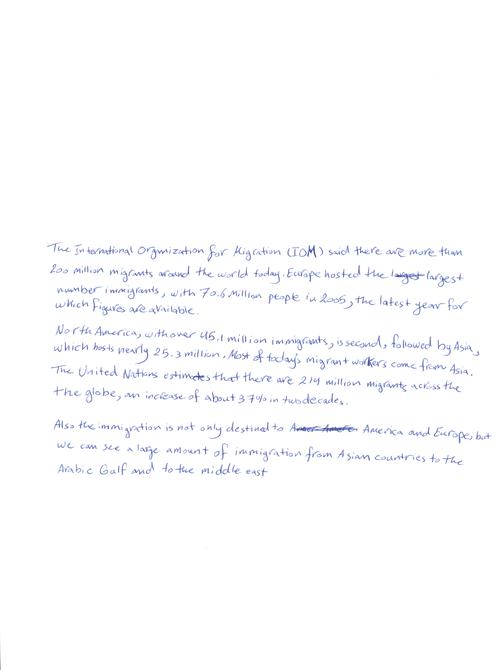 The International Orgnization for Migration (IOM) said there are more than
200 million migrants around the world today. Europe hosted the largest
number immigrants, with 70.6 Million people in 2005, the latest year for
which figures are available.
North America, with over 45.1 million immigrants, is second, followed by Asia,
which hosts nearly 25.3 million. Most of today's migrant workers come from Asia.
The United Nations estimates that there are 214 million migrants across the
the globe, an increase of about 37% in two decades.
Also the immigration is not only destined to America and Europe, but
we can see a large amount of immigration from Asian countries to the
Arabic Gulf and to the middle east